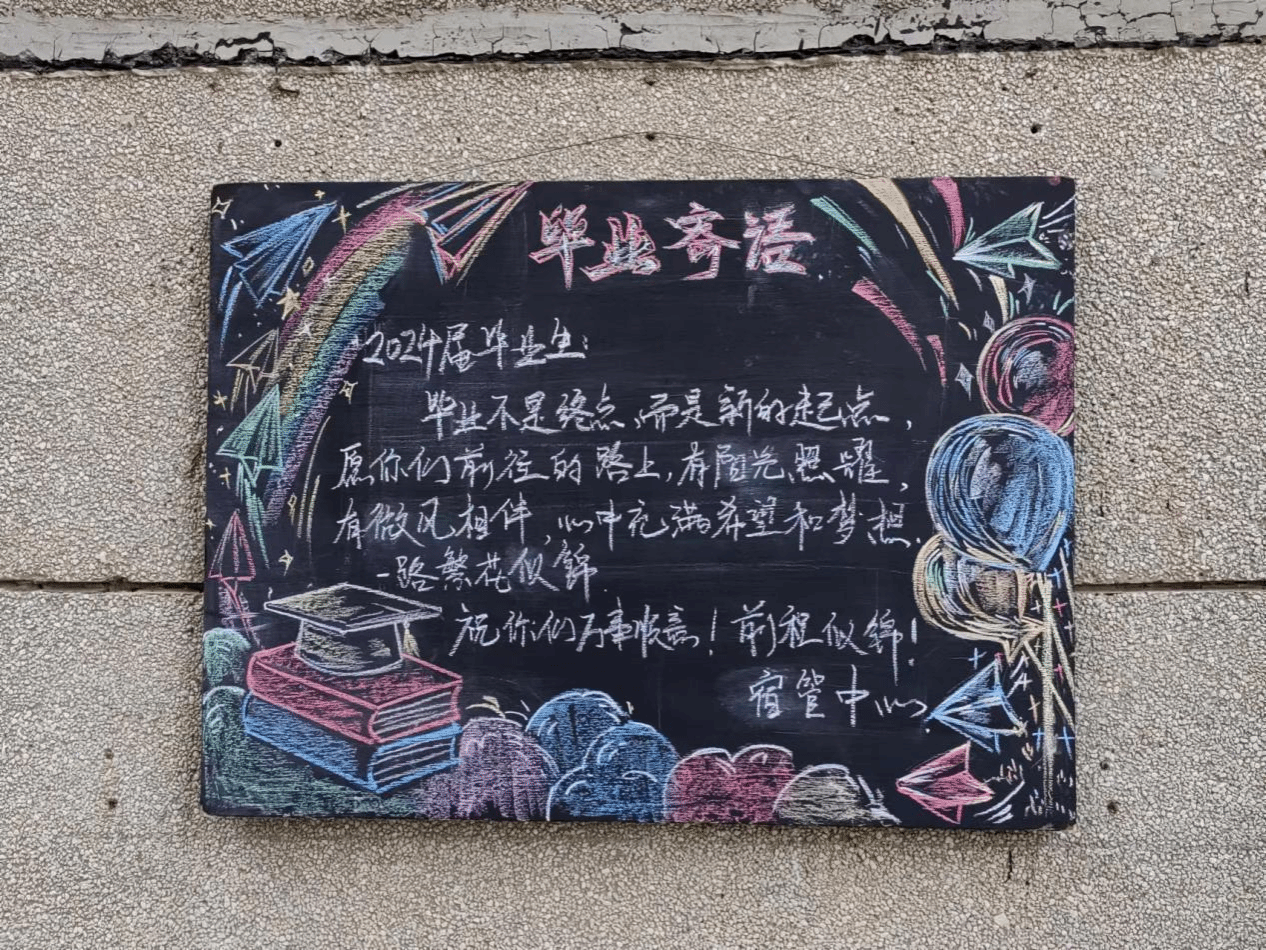 毕业寄语
2024届毕业生:
毕业不是终点,而是新的起点,
愿你们前往的路上,有阳光照耀,
有微风相伴,心中充满希望和梦想.
一路繁花似锦.
祝你们万事顺意!前程似锦!
宿管中心